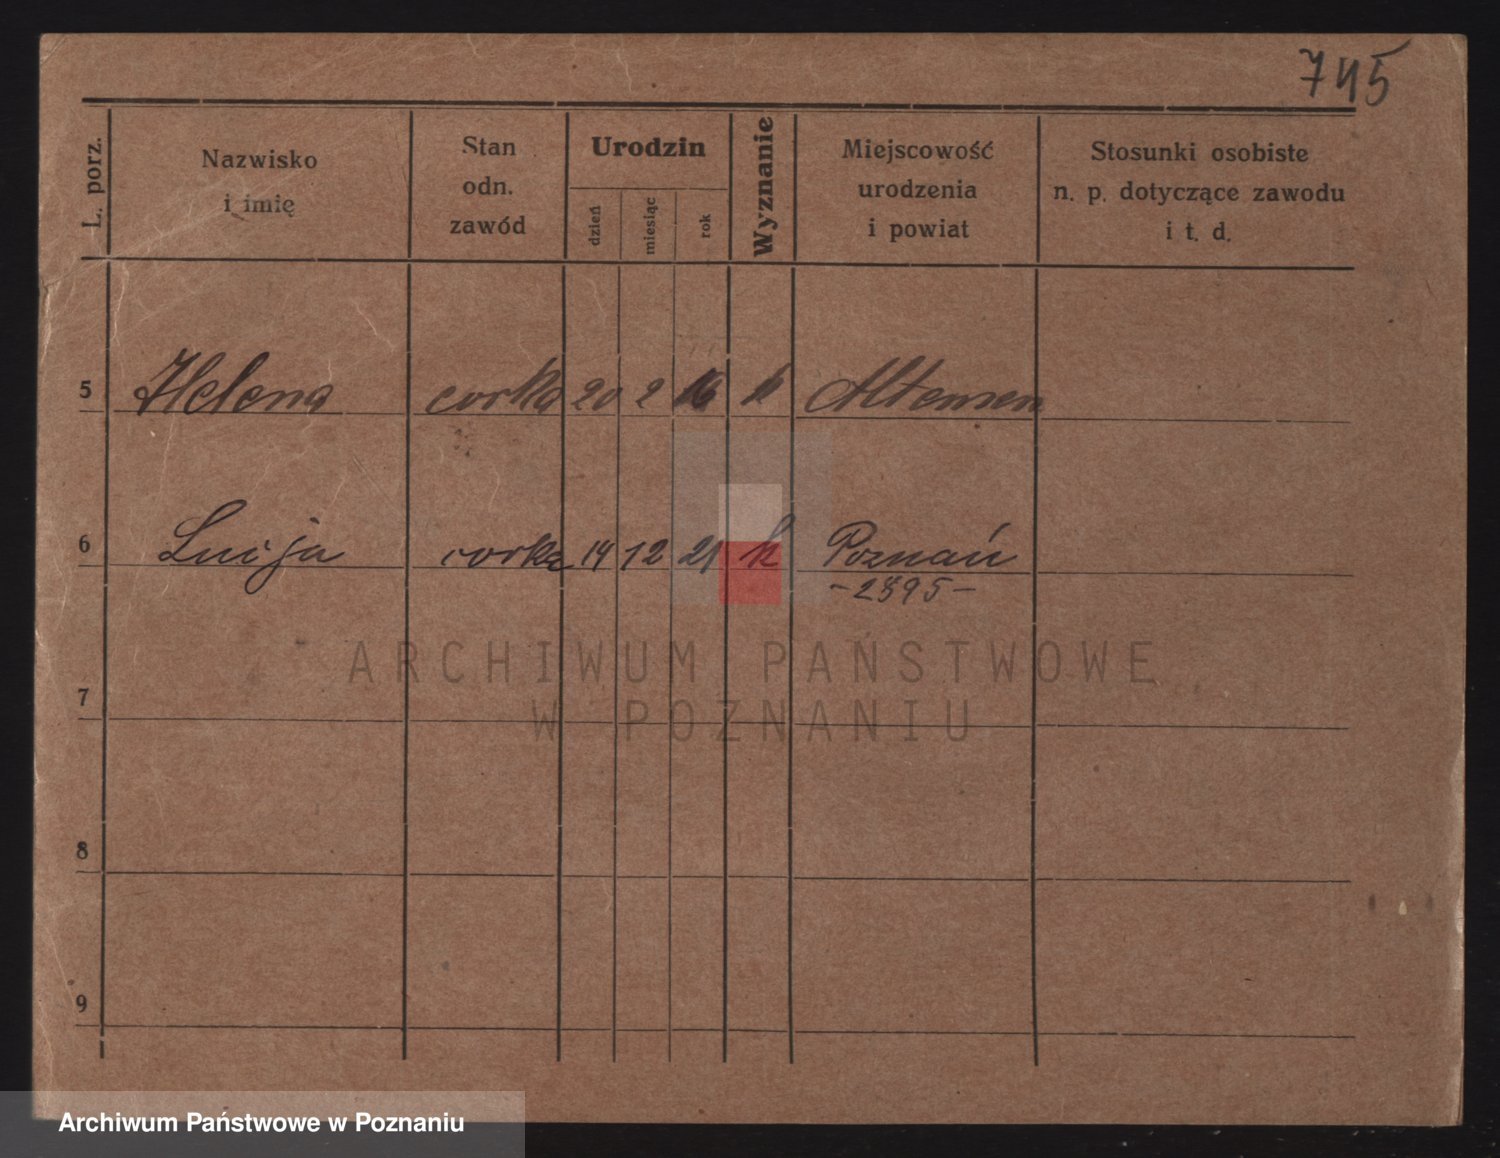 745
L. porz.
Nazwisko
i imię
Stan
odn.
zawód
Urodzin
dzień
miesiąc
rok
Wyznanie
Miejscowość
urodzenia
i powiat
Stosunki osobiste
n. p. dotyczące zawodu
i t. d.
5 Helena corka 20 2 16 k
6 Lucja corka 14 12 21 k Poznań
-2895-
ARCHIWUM PAŃSTWOWE
W POZNANIU
7
8
9
Archiwum Państwowe w Poznaniu